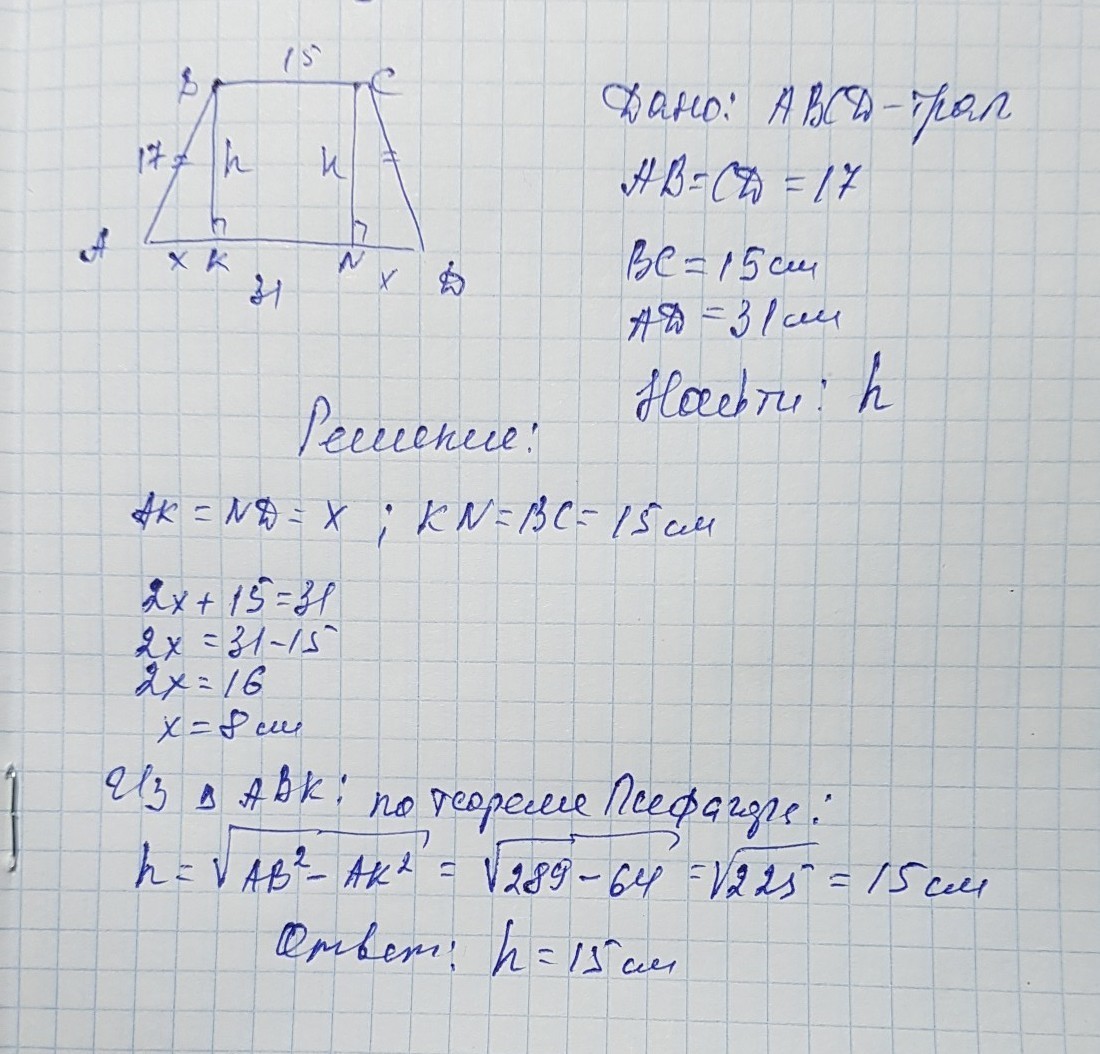 15
B C
17 h h
A x K N x D
31
Дано: ABCD - трап
AB = CD = 17
BC = 15 см
AD = 31 см
Найти: h
Решение:
AK = ND = x ; KN = BC = 15 см
2x + 15 = 31
2x = 31 - 15
2x = 16
x = 8 см
Из Δ ABK: по теореме Пифагора:
h = √AB² - AK² = √289 - 64 = √225 = 15 см
Ответ: h = 15 см